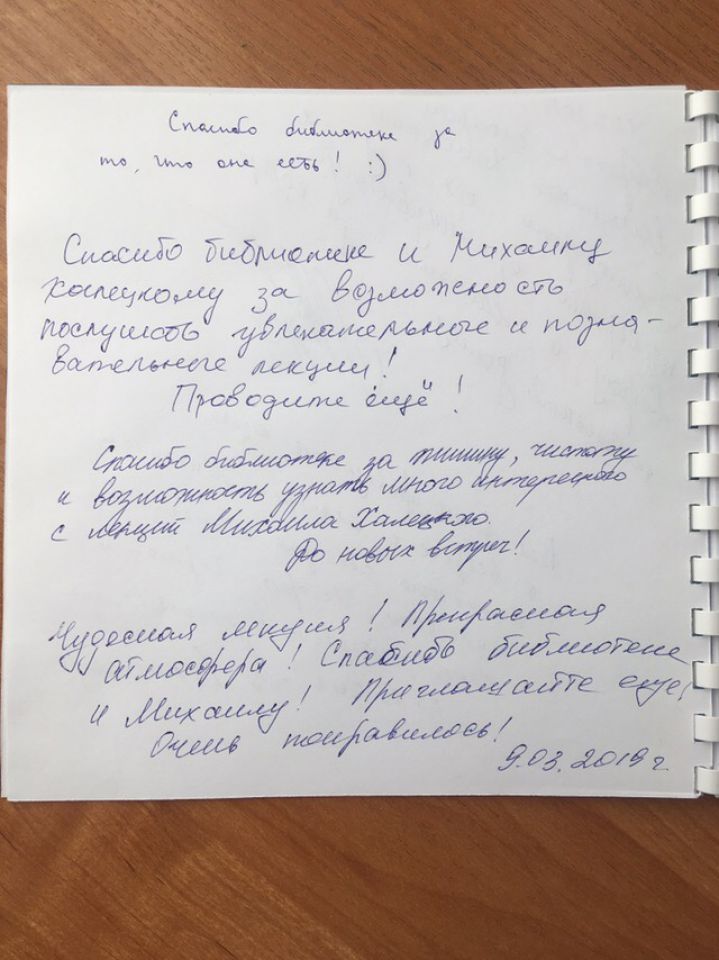 Спасибо библиотеке за
то, что она есть! :)
Спасибо библиотеке и Михаилу
Халецкому за возможность
послушать увлекательные и позна-
вательные лекции!
Проводите ещё!
Спасибо библиотеке за тишину, чистоту
и возможность узнать много интересного
с лекций Михаила Халецкого.
До новых встреч!
Чудесная лекция! Прекрасная
атмосфера! Спасибо библиотеке
и Михаилу! Приглашайте еще,
Очень понравилось!
9.03.2019 г.